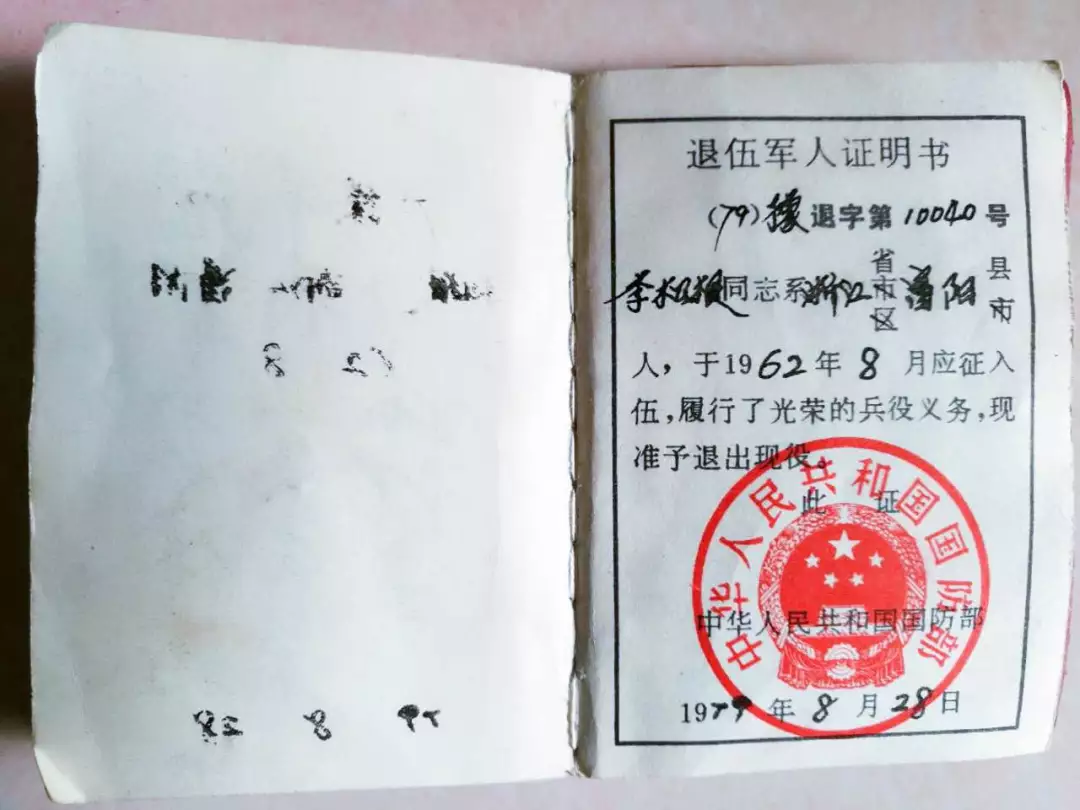 退伍军人证明书
(79) 退字第10040号
李 同志系浙江省市区 阳县市
人,于1962年8月应征入
伍,履行了光荣的兵役义务,现
准予退出现役。
此证
中华人民共和国国防部
中华人民共和国国防部
1979年8月28日